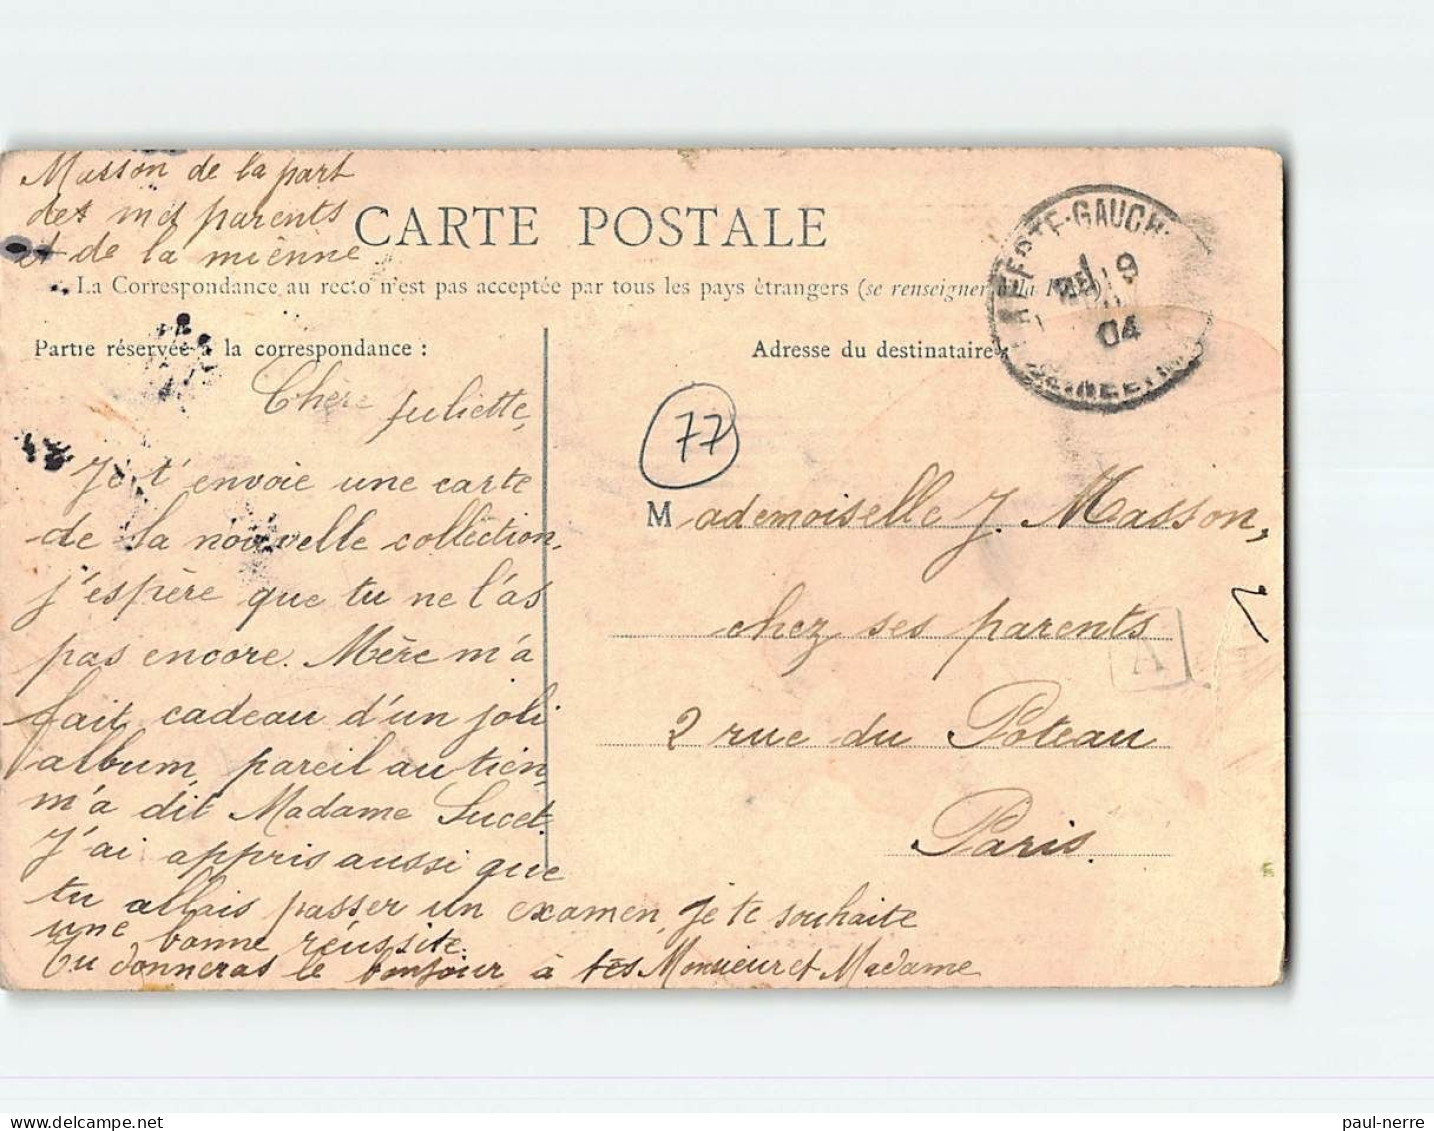 Masson de la part
des mes parents
et de la mienne
CARTE POSTALE
La Correspondance au recto n'est pas acceptée par tous les pays étrangers (se renseigner à la
Partie réservée à la correspondance :
Adresse du destinataire
LA FERTE-GAUCH
9
04
77
Chère Juliette,
Je t'envoie une carte
de la nouvelle collection,
j'espère que tu ne l'as
pas encore. Mère m'a
fait cadeau d'un joli
album, pareil au tien,
m'a dit Madame Sucet.
J'ai appris aussi que
tu allais passer un examen, je te souhaite
une bonne réussite.
Tu donneras le bonjour à tes Monsieur et Madame
Mademoiselle J. Masson,
chez ses parents
A
2 rue du Poteau
Paris.
paul-nerre